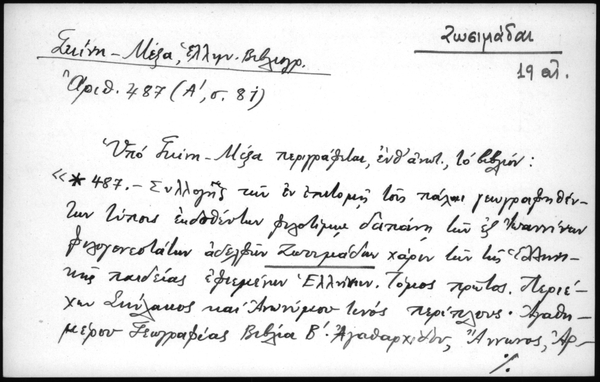 Ζωσιμάδαι
19 αἰ.
Γκίνη - Μέξα, Ἑλλην. Βιβλιογρ.
Ἀριθ. 487 (Α', σ. 81)
Ὑπὸ Γκίνη - Μέξα περιγράφεται, ἔνθ' ἀνωτ., τὸ βιβλίον:
«* 487. - Συλλογὴ τῶν ἐν ἐπιτομῇ τοῖς πάλαι γεωγραφηθέν-
των τύποις ἐκδοθέντων φιλοτίμῳ δαπάνῃ τῶν ἐξ Ἰωαννίνων
φιλογενεστάτων ἀδελφῶν Ζωσιμάδων χάριν τῶν τῆς Ἑλληνι-
κῆς παιδείας ἐφιεμένων Ἑλλήνων. Τόμος πρῶτος. Περιέ-
χων Σκύλακος καὶ Ἀνωνύμου τινὸς περίπλους. Ἀγαθη-
μέρου Γεωγραφίας Βιβλία Β'. Ἀγαθαρχίδου, Ἄννωνος, Ἀρ-
%